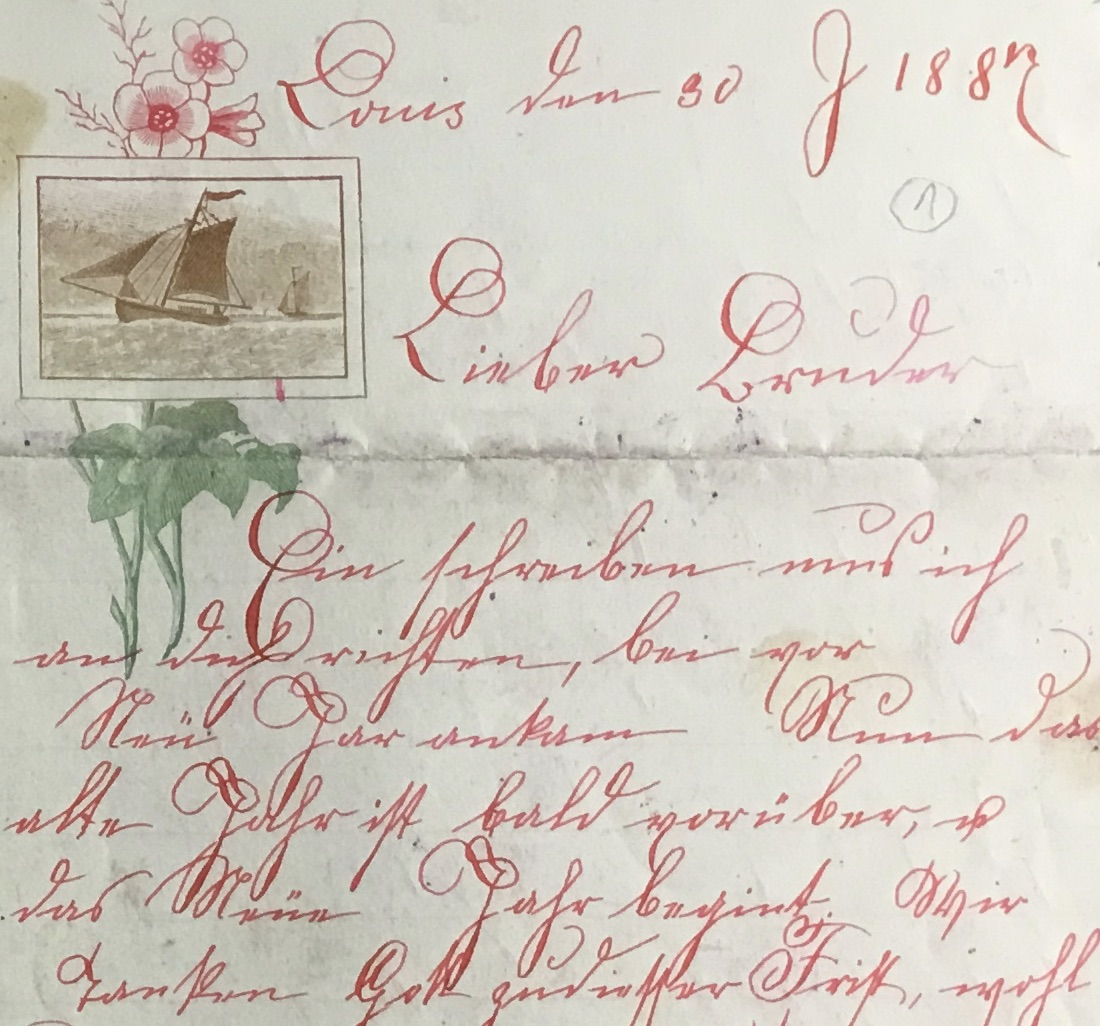 Louis den 30 J 1887
1
Lieber Bruder
Ein schreiben mus ich
an dich richten, bei vor
Neü Jar ankam Nun das
alte Jahr ist bald vorüber, u
das Neüe Jahr begint. Wir
Tanken Gott zudiesser Frist, wohl